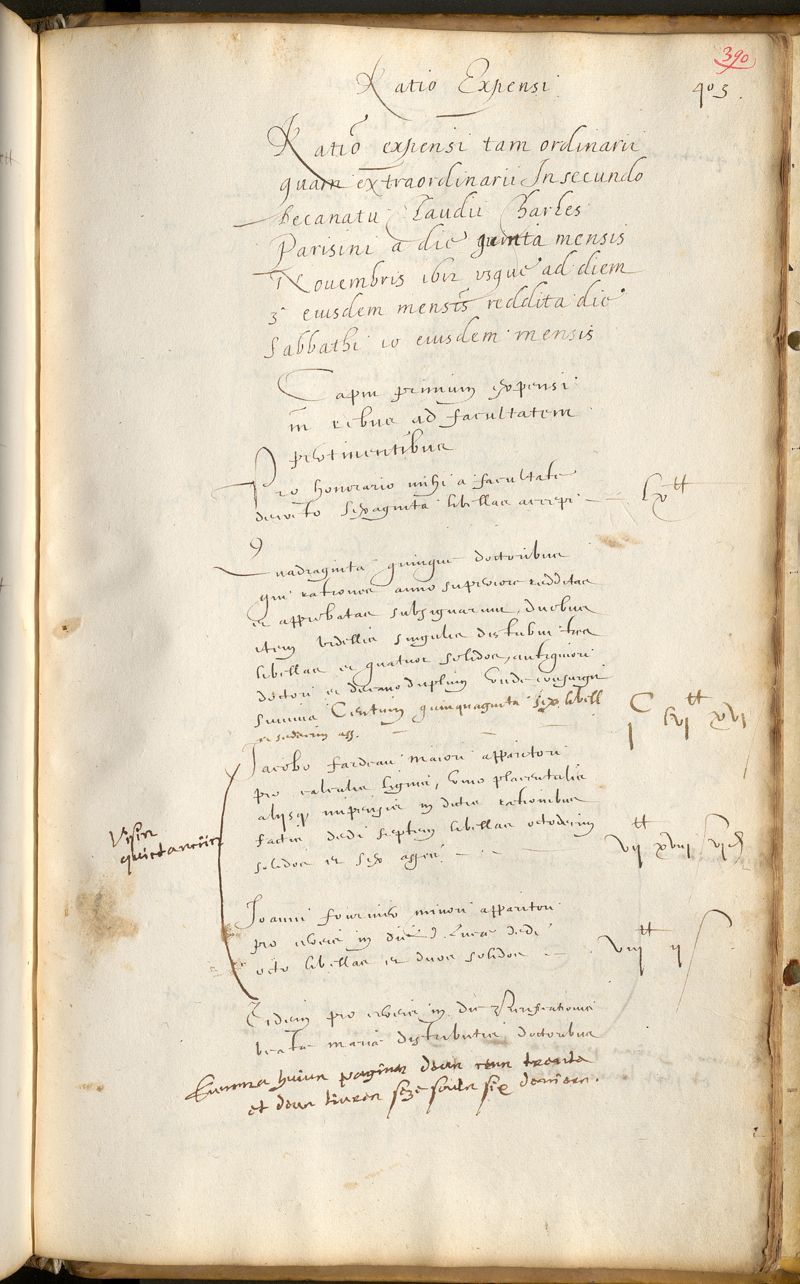 390
Ratio Expensi
405.
Ratiõ expensi tam ordinarii
quam extraordinarii In secundo
decanatu Claudii Charles
Parisini a die quinta mensis
Novembris 1612 usque ad diem
3 eiusdem mensis reddita die
sabbathi 10 eiusdem mensis
Caput primum expensi
in rebus ad facultatem
pertinentibus
Pro honorario mihi a facultate
decreto sexaginta libellas accepi — lx tt
Quadraginta quinque doctoribus
qui rationes anno superiore redditas
et approbatas subsignarunt, duobus
item bidellis singulis distribui tres
libellas et quatuor solidos, antiquiori
doctori et decano duplum unde consurgit
summa Centum quinquaginta sex libell
et sedecim ass. — — — C lvi tt xvi s
Jacobo fardeau maiori apparitori
pro calculis ligneis, vino placentulis
aliisq impensis in dictis rationibus
factis dedi septem libellas octodecim
solidos et sex asses. — vii tt xviii s vi d
Visis
quictanciis
Joanni fournier minori apparitori
pro cereis in die d. Lucæ dedi
octo libellas et duos solidos — viii tt ii s
Eidem pro cereis in die Purificationis
beatæ mariæ distributis doctoribus
Summa huius paginæ deux cens trente
et deux livres seze soulz six deniers.